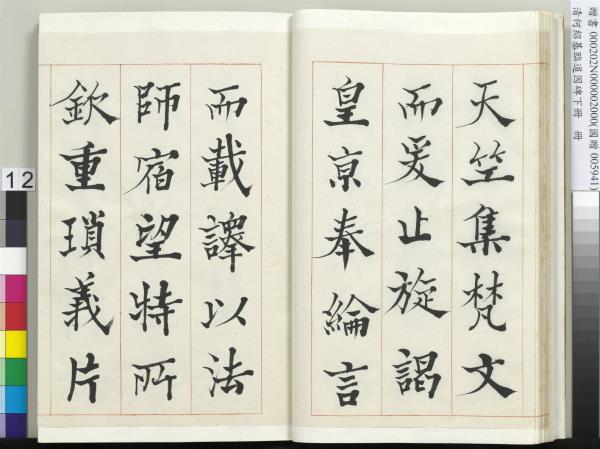 天竺集梵文
而爰止旋謁
皇京奉綸言
而載譯以法
師宿望特所
欽重瑣義片
12
贈書 000202N000002000(國贈 005941)
清何紹基臨道因碑下冊 冊